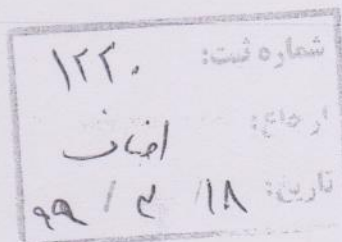 شماره ثبت: ۱۲۲۰
ارجاع: اصناف
تاریخ: ۱۸ / / ۹۹